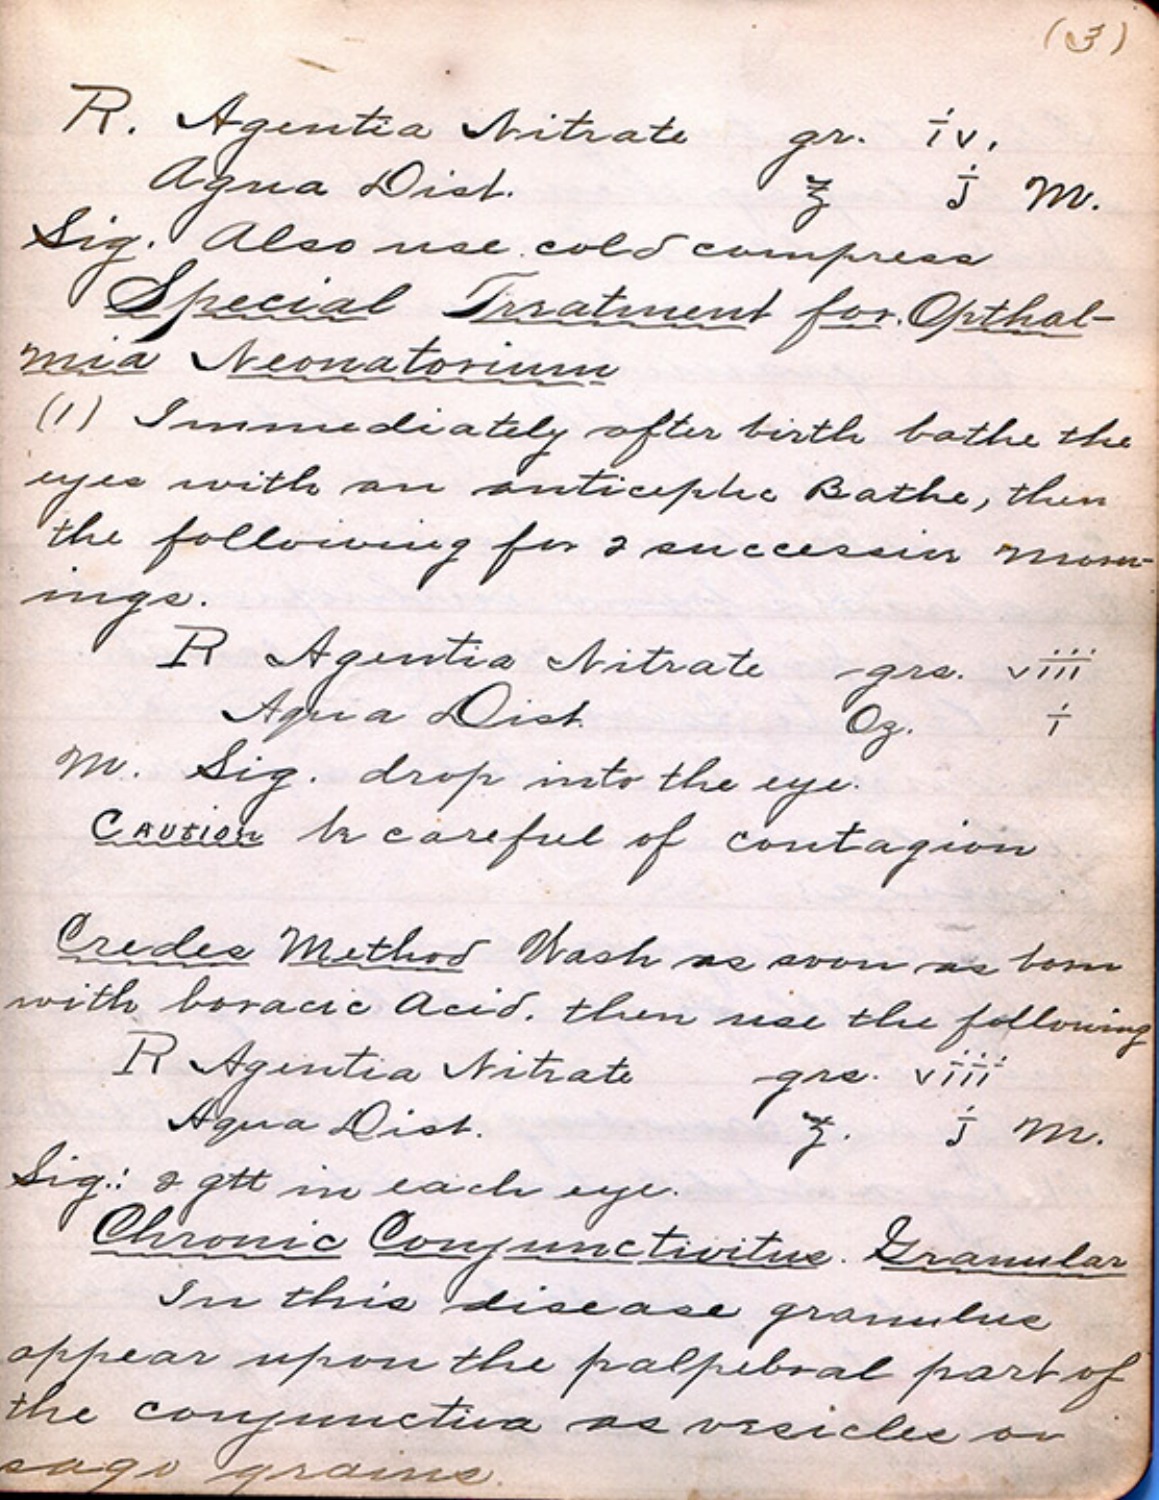 (3)
R. Agentia Nitrate gr. iv.
Aqua Dist. ʒ j M.
Sig. Also use cold compress
Special Treatment for Opthal-
mia Neonatorium
(1) Immediately after birth bathe the
eyes with an anticeptic Bathe, then
the following for 2 succession morn-
ings.
R Agentia Nitrate grs. viii
Aqua Dist. Oz. i
M. Sig. drop into the eye.
Caution be careful of contagion
Credes Method Wash as soon as born
with boracic Acid. then use the following
R Agentia Nitrate grs. viii
Aqua Dist. ʒ. j M.
Sig.: 2 gtt in each eye.
Chronic Conjunctivitus. Granular
In this disease granulus
appear upon the palpebral part of
the conjunctiva as vesicles or
sago grains.